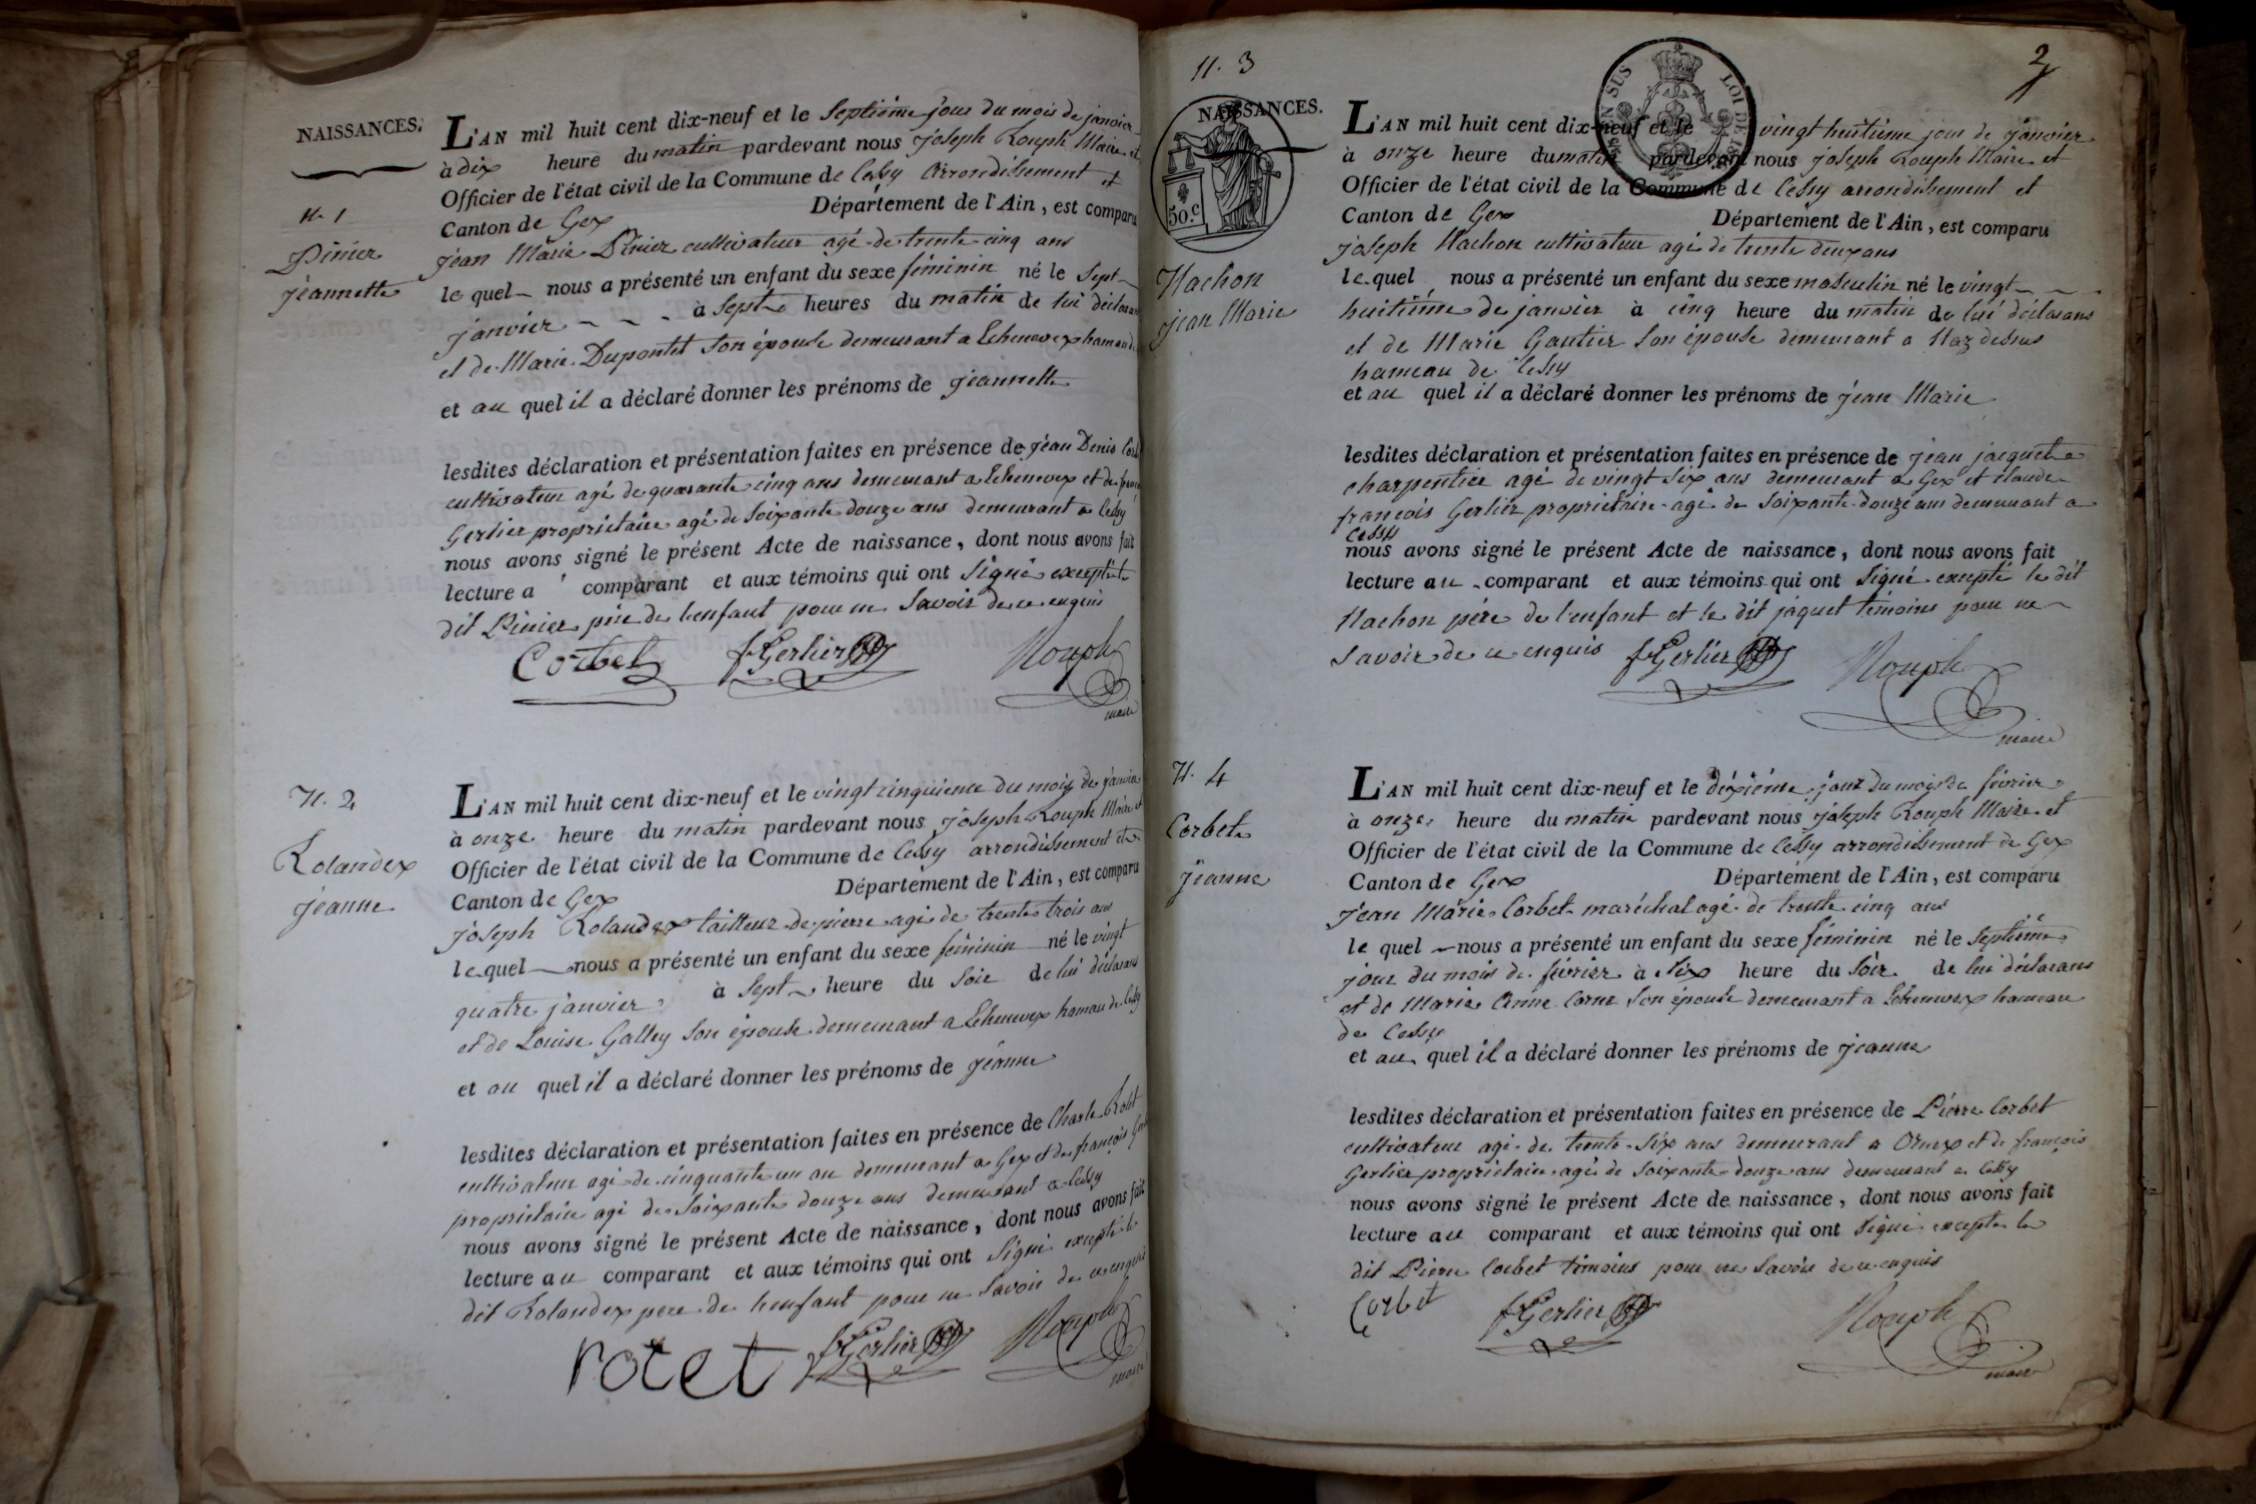 NAISSANCES.
N. 1
Pinier
jeannette
L'AN mil huit cent dix-neuf et le Septième jour du mois de janvier
à dix heure du matin pardevant nous joseph Rouph Maire et
Officier de l'état civil de la Commune de Cessy arrondissement et
Canton de Gex Département de l'Ain, est comparu
jean Marie Pinier cultivateur agé de trente cinq ans
le quel nous a présenté un enfant du sexe féminin né le Sept
janvier à Sept heures du matin de lui déclarant
et de Marie Dupontet Son épouse demeurant a Echenevex hameau de
et au quel il a déclaré donner les prénoms de jeannette
lesdites déclaration et présentation faites en présence de jean Denis
cultivateur agé de quarante cinq ans demeurant a Echenevex et de
Gerlier propriétaire agé de Soixante douze ans demeurant a Cessy
nous avons signé le présent Acte de naissance, dont nous avons fait
lecture a comparant et aux témoins qui ont Signé excepté le
dit Pinier père de lenfant pour ne Savoir de ce enquis
Corbet f Gerlier Rouph
maire
N. 2
Rolandex
jeanne
L'AN mil huit cent dix-neuf et le vingt cinquième du mois de janvier
à onze heure du matin pardevant nous joseph Rouph Maire et
Officier de l'état civil de la Commune de Cessy arrondissement et
Canton de Gex Département de l'Ain, est comparu
joseph Rolandex tailleur de pierre agé de trente trois ans
le quel nous a présenté un enfant du sexe féminin né le vingt
quatre janvier à Sept heure du Soir de lui déclarant
et de Louise Gallay Son épouse demeurant a Echenevex hameau de Cessy
et au quel il a déclaré donner les prénoms de jeanne
lesdites déclaration et présentation faites en présence de Charle Rolet
cultivateur agé de cinquante un an demeurant a Gex et de françois
propriétaire agé de Soixante douze ans demeurant a Cessy
nous avons signé le présent Acte de naissance, dont nous avons fait
lecture au comparant et aux témoins qui ont Signé excepté le
dit Rolandex pere de lenfant pour ne Savoir de ce enquis
rolet f Gerlier Rouph
maire
N. 3
2
NAISSANCES.
50.c
LOI DE
Hachon
jean Marie
L'AN mil huit cent dix-neuf et le vingt huitième jour de janvier
à onze heure du matin pardevant nous joseph Rouph Maire et
Officier de l'état civil de la Commune de Cessy arrondissement et
Canton de Gex Département de l'Ain, est comparu
joseph Hachon cultivateur agé de trente deux ans
le quel nous a présenté un enfant du sexe masculin né le vingt
huitième de janvier à cinq heure du matin de lui déclarans
et de Marie Gautier Son épouse demeurant a Naz dessus
hameau de Cessy
et au quel il a déclaré donner les prénoms de jean Marie
lesdites déclaration et présentation faites en présence de jean jacquet
charpentier agé de vingt Six ans demeurant a Gex et Claude
françois Gerlier propriétaire agé de Soixante douze ans demeurant a
Cessy
nous avons signé le présent Acte de naissance, dont nous avons fait
lecture au comparant et aux témoins qui ont Signé excepté le dit
Hachon père de l'enfant et le dit jaquet témoins pour ne
Savoir de ce enquis f Gerlier Rouph
maire
N. 4
Corbet
jeanne
L'AN mil huit cent dix-neuf et le dixième jour du mois de février
à onze heure du matin pardevant nous joseph Rouph Maire et
Officier de l'état civil de la Commune de Cessy arrondissement de Gex
Canton de Gex Département de l'Ain, est comparu
jean Marie Corbet maréchal agé de trente cinq ans
le quel nous a présenté un enfant du sexe féminin né le Septième
jour du mois de février à Six heure du Soir de lui déclarans
et de Marie Anne Son épouse demeurant a Echenevex hameau
de Cessy
et au quel il a déclaré donner les prénoms de jeanne
lesdites déclaration et présentation faites en présence de Pierre Corbet
cultivateur agé de trente Six ans demeurant a Ornex et de françois
Gerlier propriétaire agé de Soixante douze ans demeurant a Cessy
nous avons signé le présent Acte de naissance, dont nous avons fait
lecture au comparant et aux témoins qui ont Signé excepte le
dit Pierre Corbet témoins pour ne Savoir de ce enquis
Corbet f Gerlier Rouph
maire